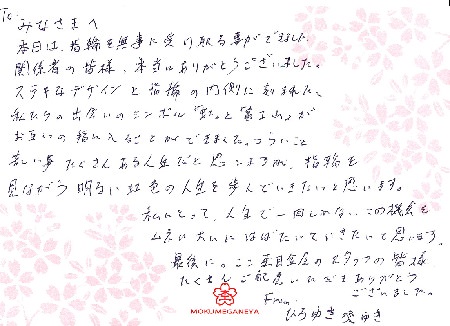 To.
みなさまへ
本日は、指輪を無事に受け取る事ができました。
関係者の皆様、本当にありがとうございました。
ステキなデザインと指輪の内側に刻まれた、
私たちの出会いのシンボル「虹」と「富士山」が
お互いの指に入ることができました。つらいこと
苦しい事たくさんある人生だと思いますが、指輪を
見ながら明るい虹色の人生を歩んでいきたいと思います。
私にとって、人生で一回しかないこの機会を
大いにはばたいていきたいと思います。
最後に。ここ杢目金屋のスタッフの皆様
たくさんご配慮いただきありがとう
ございました。
From.
ひろゆき
MOKUMEGANEYA